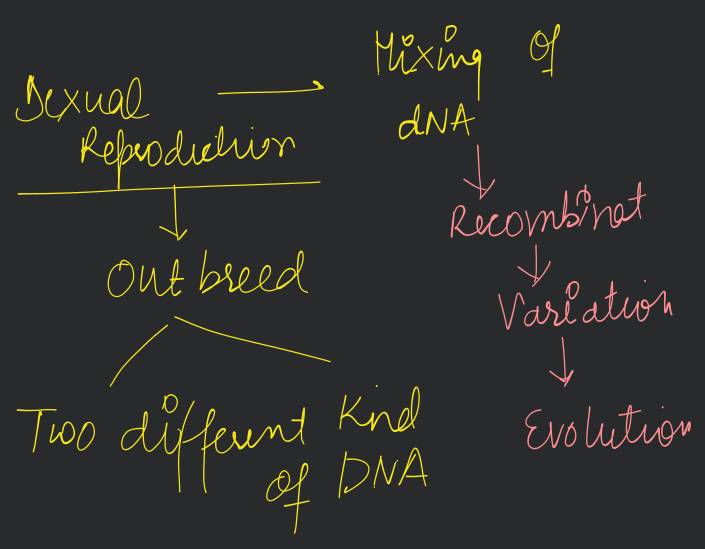 Sexual
Reproduction
Mixing of
dNA
Recombinat
Variation
Evolution
Out breed
Two different Kind
of DNA